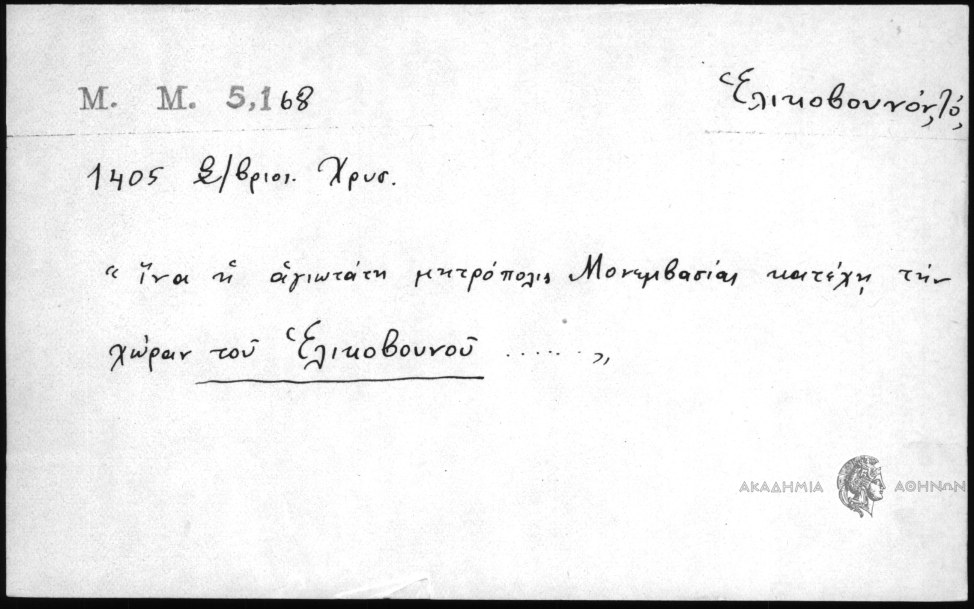 Μ. Μ. 5,168
Ἑλικοβουνόν, Τό,
1405 Σ/βριοι. Χρυσ.
“ ἵνα ἡ ἁγιωτάτη μητρόπολις Μονεμβασίας κατέχῃ τὴν
χώραν τοῦ Ἑλικοβουνοῦ ...... „
ΑΚΑΔΗΜΙΑ ΑΘΗΝΩΝ